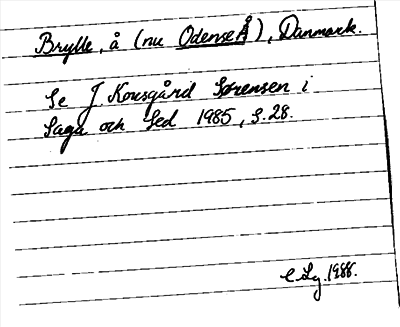 Brylle, å (nu Odense Å), Danmark.
Se J Kousgård Sørensen i
Saga och Sed 1985, s. 28.
C Lg. 1986.